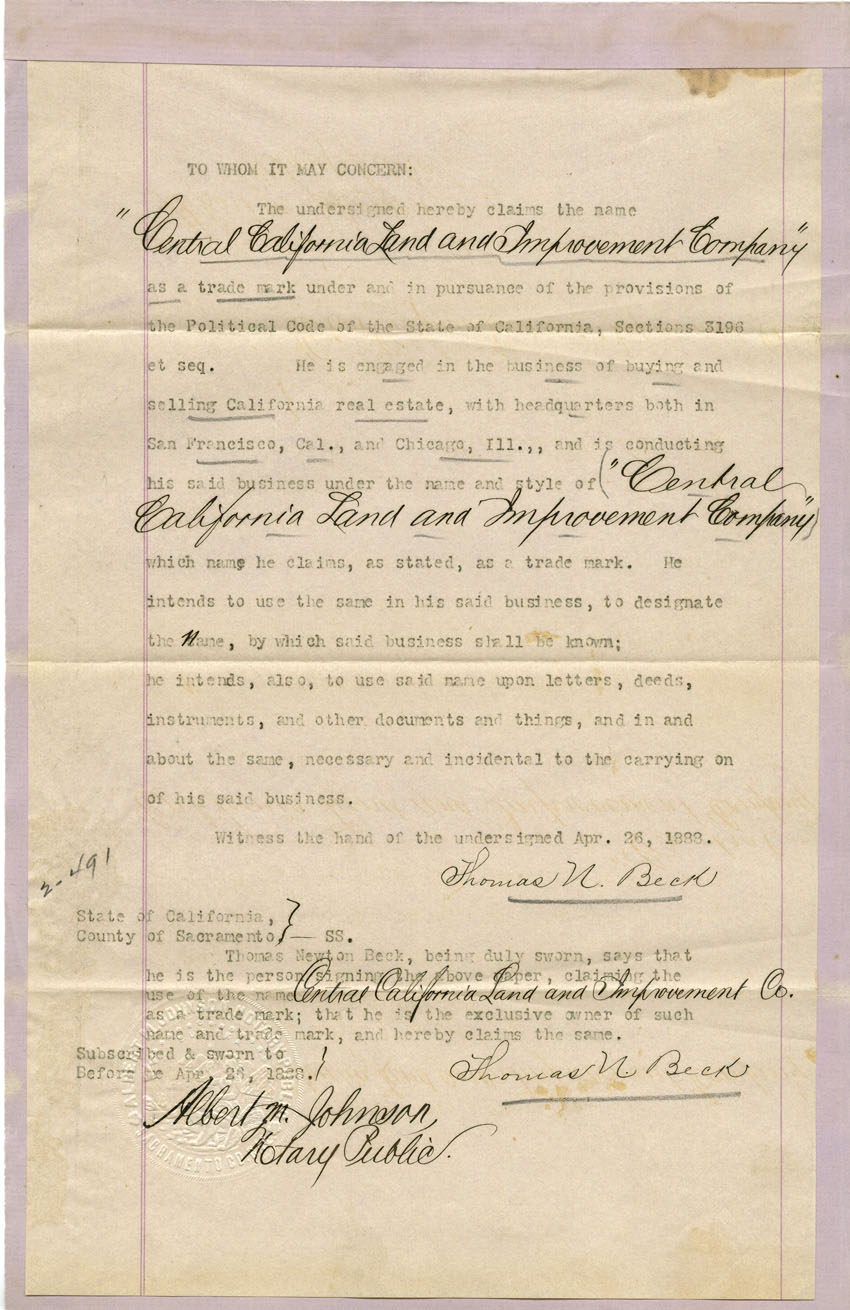 TO WHOM IT MAY CONCERN:
The undersigned hereby claims the name
"Central California Land and Improvement Company"
as a trade mark under and in pursuance of the provisions of
the Political Code of the State of California, Sections 3196
et seq. He is engaged in the business of buying and
selling California real estate, with headquarters both in
San Francisco, Cal., and Chicago, Ill.,, and is conducting
his said business under the name and style of ("Central
California Land and Improvement Company")
which name he claims, as stated, as a trade mark. He
intends to use the same in his said business, to designate
the Name, by which said business shall be known;
he intends, also, to use said name upon letters, deeds,
instruments, and other documents and things, and in and
about the same, necessary and incidental to the carrying on
of his said business.
Witness the hand of the undersigned Apr. 26, 1888.
2-491
Thomas N. Beck
State of California, }
County of Sacramento, } — SS.
Thomas Newton Beck, being duly sworn, says that
he is the person signing the above paper, claiming the
use of the name Central California Land and Improvement Co.
as a trade mark; that he is the exclusive owner of such
name and trade mark, and hereby claims the same.
Subscribed & sworn to }
Before me Apr. 26, 1888. }
Thomas N. Beck
Albert M. Johnson,
Notary Public.